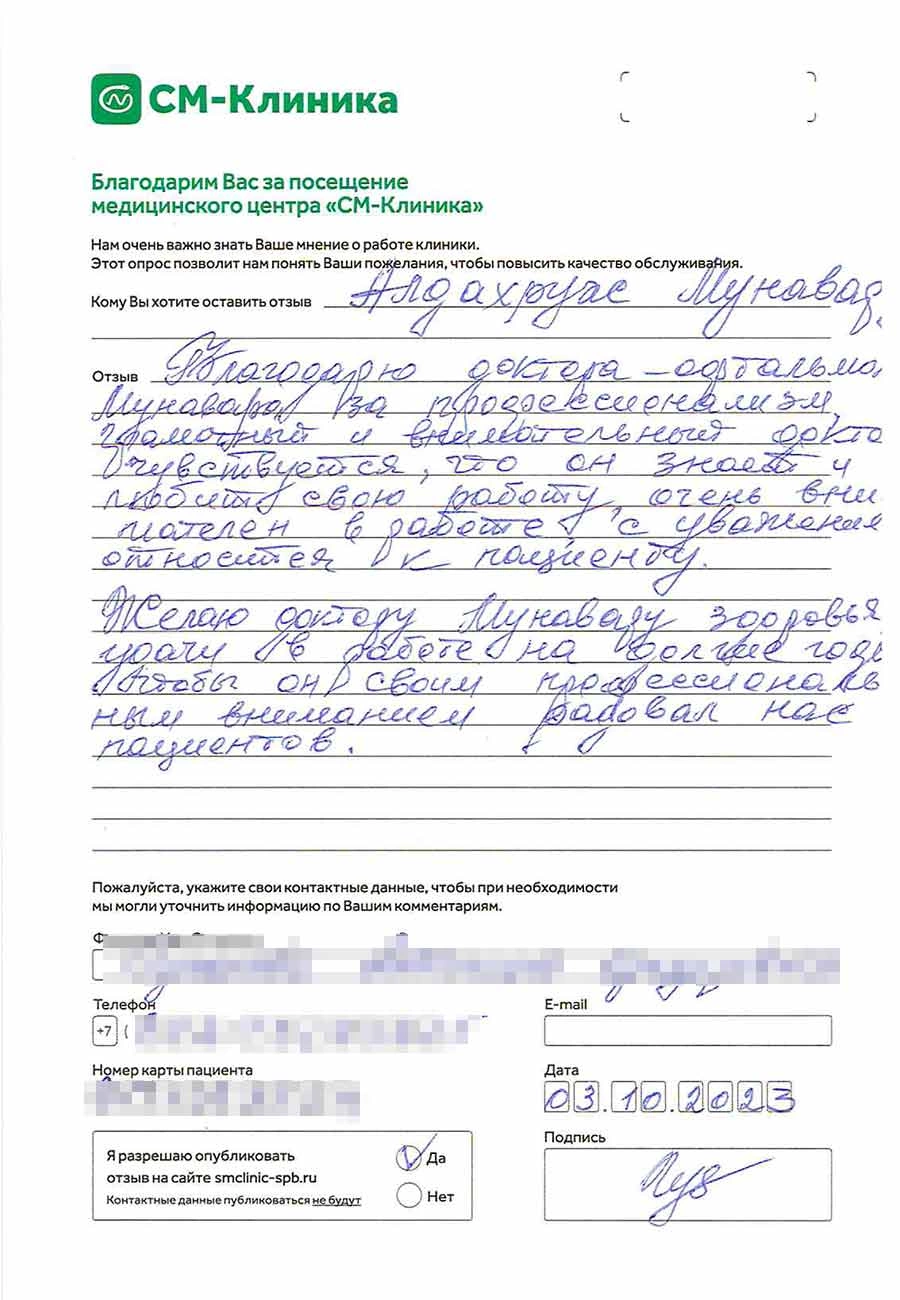 СМ-Клиника
Благодарим Вас за посещение
медицинского центра «СМ-Клиника»
Нам очень важно знать Ваше мнение о работе клиники.
Этот опрос позволит нам понять Ваши пожелания, чтобы повысить качество обслуживания.
Кому Вы хотите оставить отзыв Алдахруас Мунавар
Отзыв Благодарю доктора – офтальмо
Мунавара за профессионализм,
грамотный и внимательный докто
Чувствуется, что он знает и
любит свою работу, очень вни
мателен в работе, с уважением
относится к пациенту.
Желаю доктору Мунавару здоровья
удачи в работе на долгие годы
Чтобы он своим профессиональ
ным вниманием радовал нас
пациентов.
Пожалуйста, укажите свои контактные данные, чтобы при необходимости
мы могли уточнить информацию по Вашим комментариям.
Телефон
+7 (
E-mail
Номер карты пациента
Дата
03.10.2023
Я разрешаю опубликовать
отзыв на сайте smclinic-spb.ru
Контактные данные публиковаться не будут
Да
Нет
Подпись